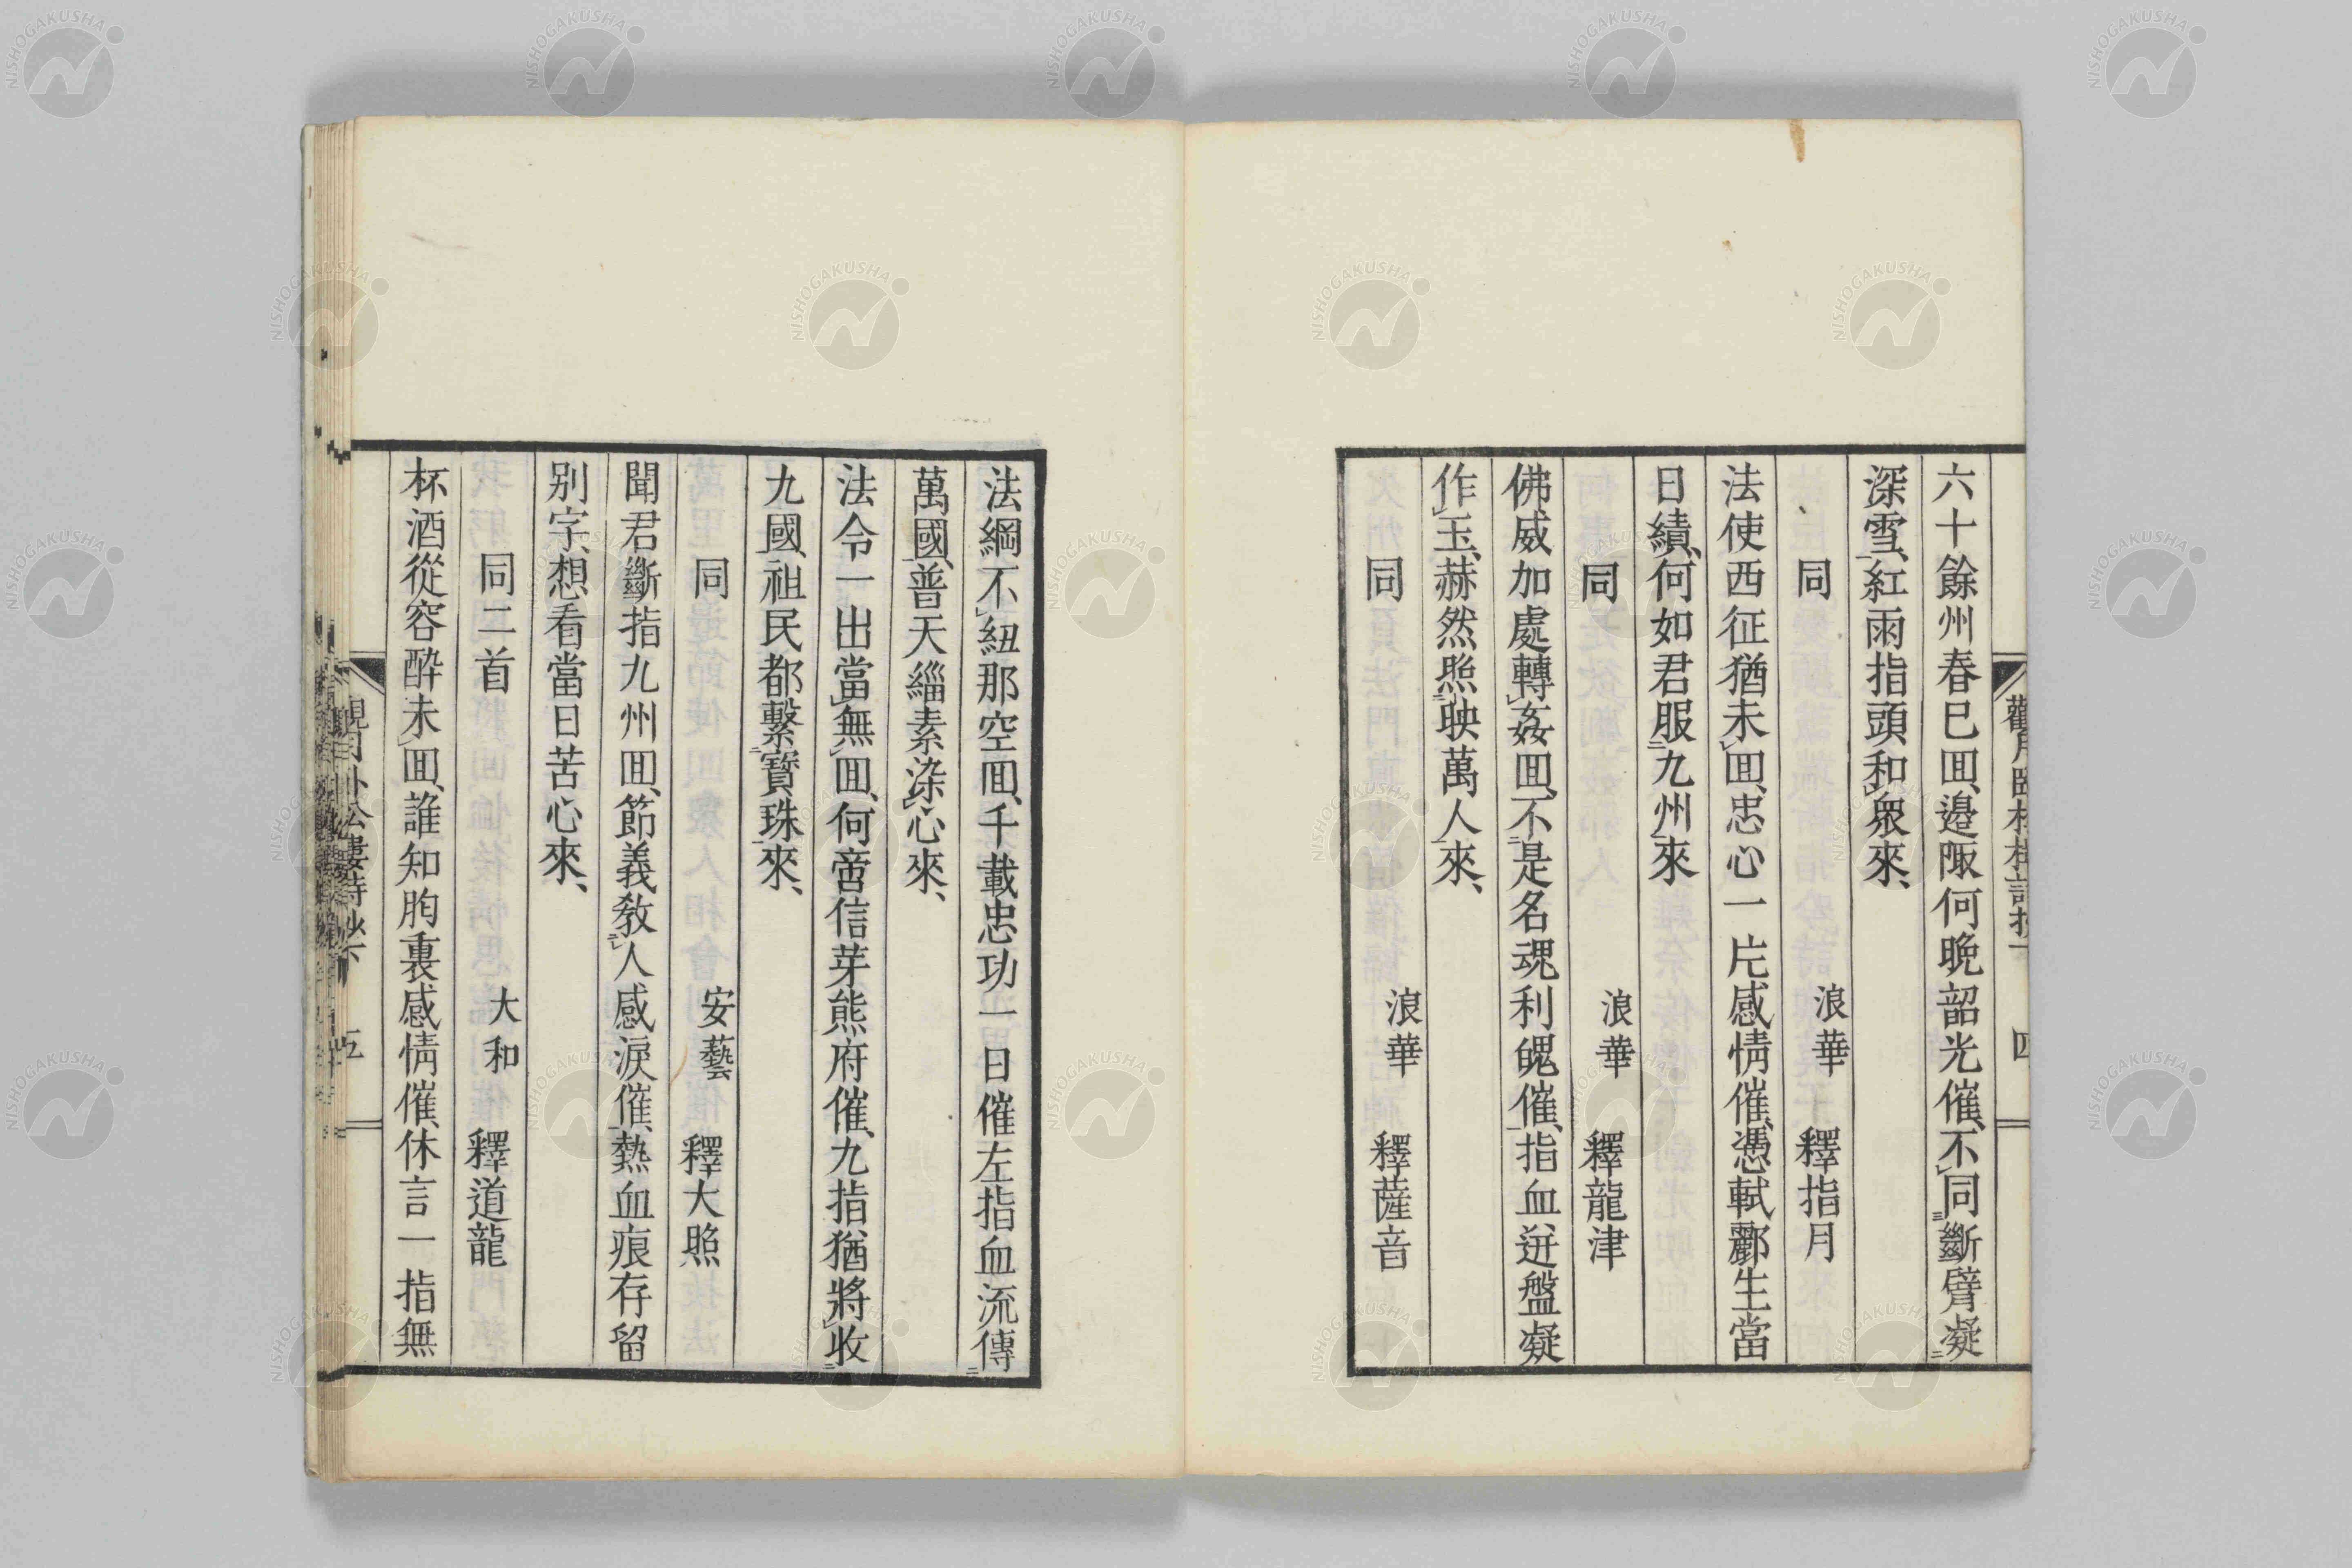 六十餘州春已囬、邉陬何晩韶光催、不同斷臂凝
深雪、紅雨指頭和衆來、
同　浪華　釋指月
法使西征猶未囬、忠心一片感情催、憑軾酈生當
日績、何如君服九州來
同　浪華　釋龍津
佛威加處轉姦囬、不是名魂利魄催、指血迸盤凝
作玉、赫然照映萬人來、
同　浪華　釋薩音
四
法綱不紐那空囬、千載忠功一日催左指血流傳
萬國、普天緇素染心來、
法令一出當無囬、何啻信芽熊府催、九指猶將收
九國、祖民都繫寳珠來、
同　安藝　釋大照
聞君斷指九州囬、節義教人感淚催、熱血痕存留
别字、想看當日苦心來、
同二首　大和　釋道龍
杯酒從容酔未囬、誰知胸裏感情催、休言一指無
五
NISHOGAKUSHA